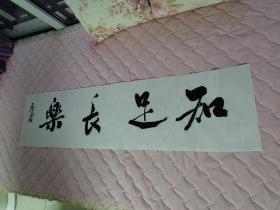 知足長樂